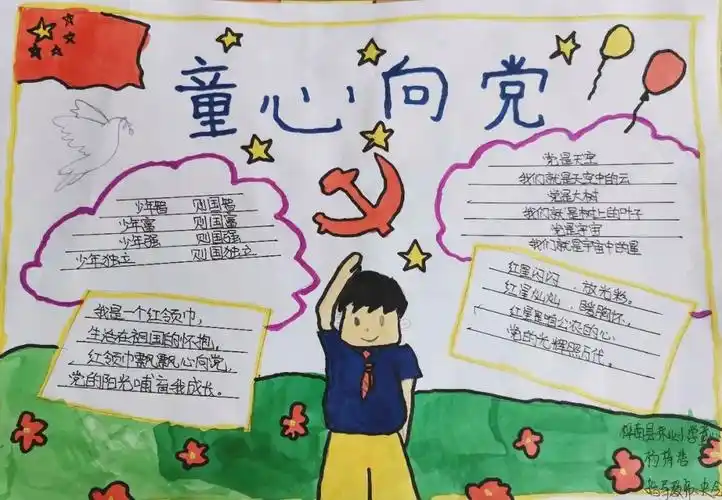 童心向党
少年智 则国智
少年富 则国富
少年强 则国强
少年独立 则国独立
党是天空
我们就是天空中的云
党是大树
我们就是树上的叶子
党是宇宙
我们就是宇宙中的星
我是一个红领巾,
生活在祖国的怀抱,
红领巾飘飘心向党,
党的阳光哺育我成长。
红星闪闪,放光彩。
红星灿灿,暖胸怀,
红星是咱工农的心
党的光辉照万代。
桦南县
小学
指导教师